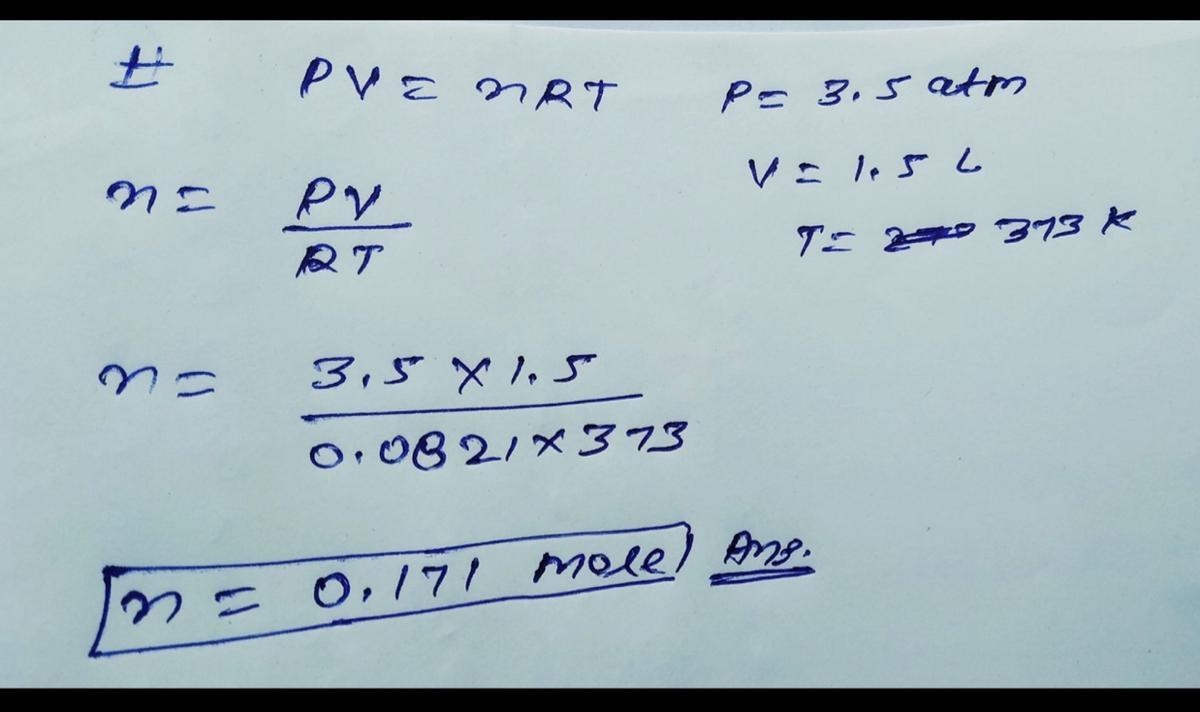 # PV = nRT P = 3.5 atm
V = 1.5 L
n = PV
RT
T = 373 K
n = 3.5 × 1.5
0.0821 × 373
n = 0.171 mole Ans.